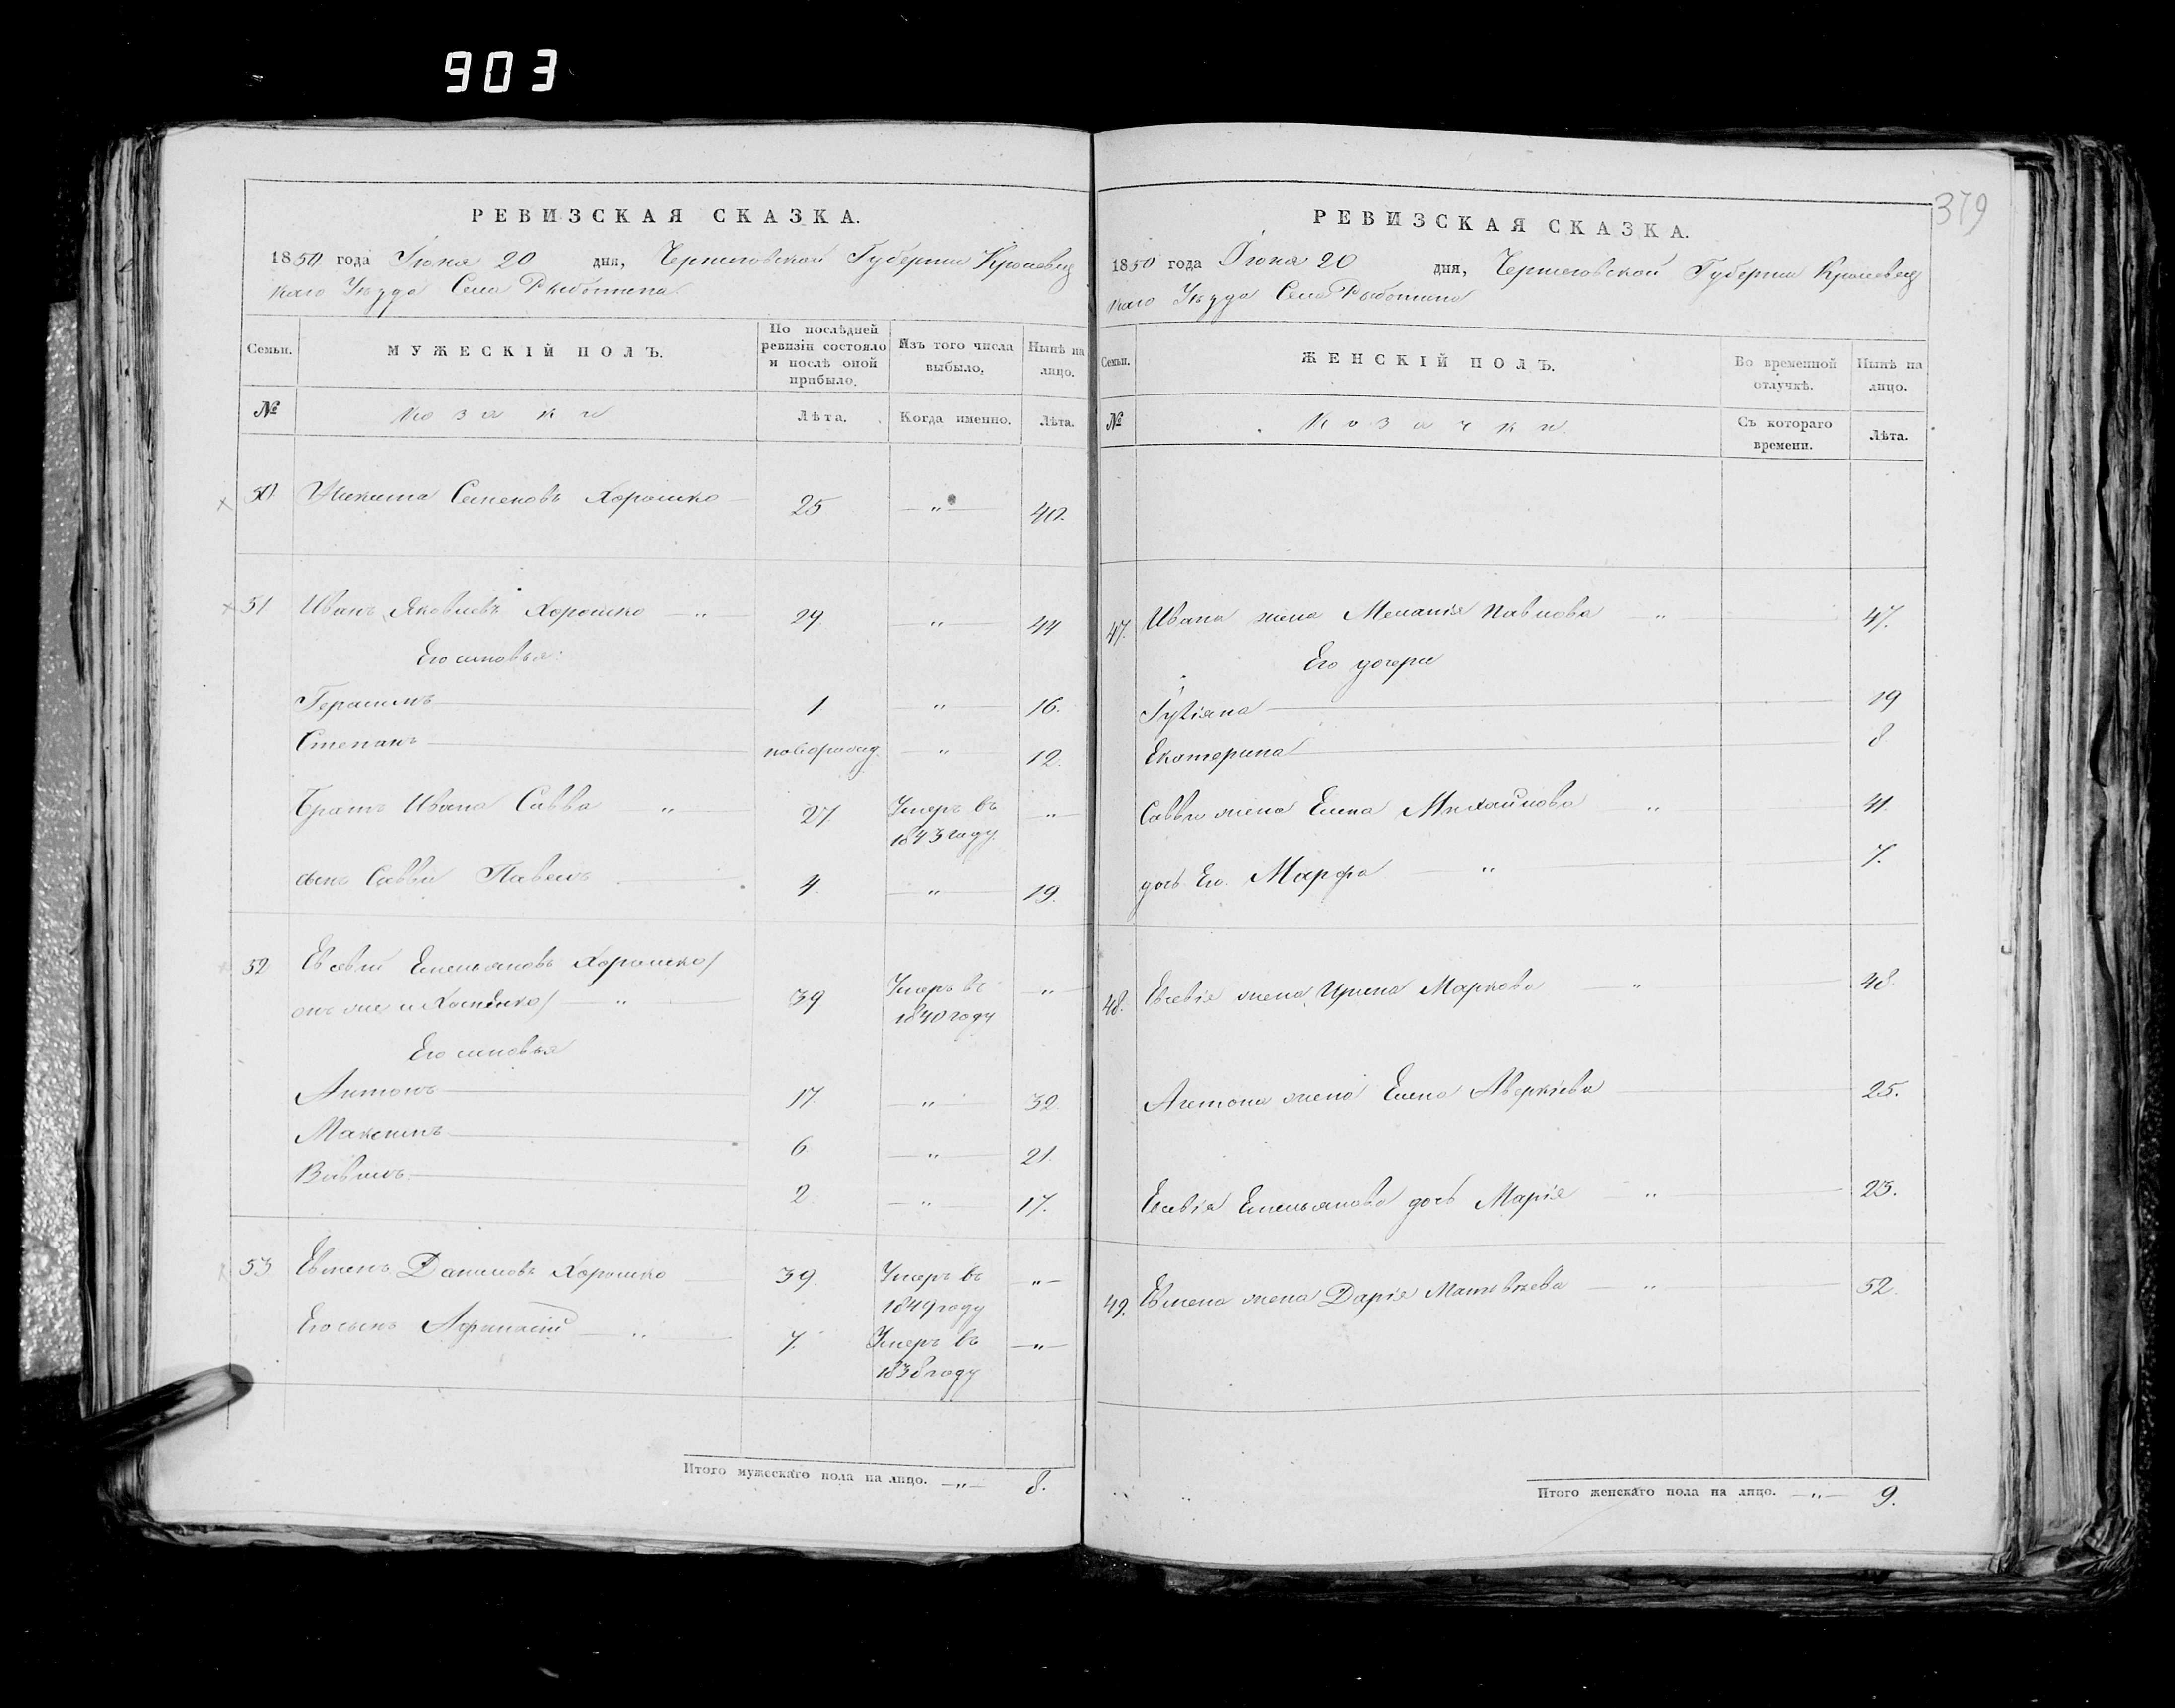 903
379
РЕВИЗСКАЯ СКАЗКА.
1850 года Іюня 20 дня, Черниговской Губерніи Кролевец
каго Уѣзда Села Рыботина
Семьи. МУЖЕСКІЙ ПОЛЪ. По послѣдней ревизіи состояло и послѣ оной прибыло. Изъ того числа выбыло. Нынѣ на лицо.
№ Козаки Лѣта. Когда именно. Лѣта.
50 Никита Семеновъ Хорошко 25 — " — 40.
51 Иванъ Яковлевъ Хорошко — " — 29 — " — 44
Его сыновья:
Герасимъ 1 — " — 16.
Степанъ новорожд. — " — 12.
Братъ Ивана Савва " 27 Умеръ въ — " —
1843 году.
сынъ Саввы Павелъ 4. — " — 19.
52 Евсевій Емельяновъ Хорошко/
онъ же и / — " — 39 Умеръ въ — " —
1840 году
Его сыновья
Антонъ 17 — " — 32.
Максимъ 6 — " — 21.
Вавилъ 2 — " — 17.
53 Евменъ Даниловъ Хорошко 39. Умеръ въ — " —
1849 году
Его сынъ Афанасій — " — 7. Умеръ въ — " —
1838 году
Итого мужескаго пола на лицо. — " — 8.
РЕВИЗСКАЯ СКАЗКА.
1850 года Іюня 20 дня, Черниговской Губерніи Кролевец
каго Уѣзда Села Рыботина
Семьи. ЖЕНСКІЙ ПОЛЪ. Во временной отлучкѣ. Нынѣ на лицо.
№ Козачки Съ котораго времени. Лѣта.
47. Ивана жена Меланія Павлова — " — 47.
Его дочери
19
Екатерина 8
Саввы жена Елена Михайлова " 41.
дочь Его Марфа — " — 7.
48. Евсевія жена Ирина Маркова — " — 48.
Антона жена Елена Аверкіева 25.
Евсевія Емельянова дочь Марія " 23.
49. Евмена жена Дарія Матвѣева — " — 52.
Итого женскаго пола на лицо. — " — 9.